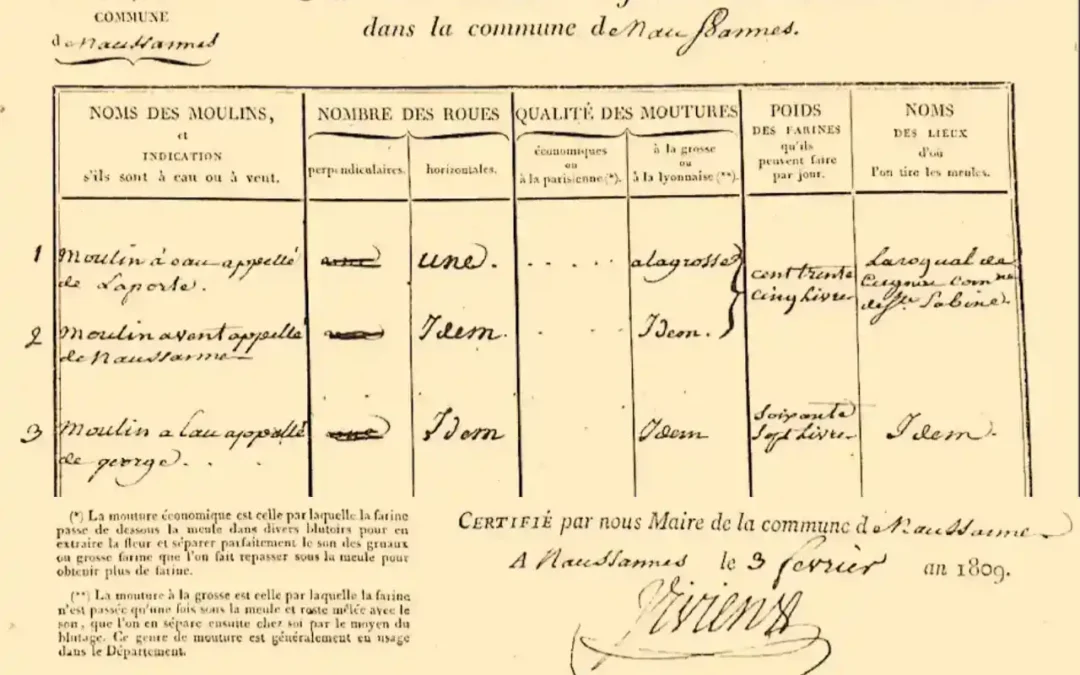 COMMUNE
de Naussannes
dans la commune de Naussannes.
NOMS DES MOULINS,
et
INDICATION
s'ils sont à eau ou à vent.
NOMBRE DES ROUES
perpendiculaires.
horizontales.
QUALITÉ DES MOUTURES
économiques
ou
à la parisienne (*).
à la grosse
ou
à la lyonnaise (**).
POIDS
DES FARINES
qu'ils
peuvent faire
par jour.
NOMS
DES LIEUX
d'où
l'on tire les meules.
1
Moulin á eau appellé
de Laporte.
une
une.
. . . . .
alagrosse
cent trente
cinq Livre
Laroqual de
comne
de ste Sabine.
2
Moulin a vent appellé
de Naussanne
Idem.
Idem.
3
Moulin a Eau appellé
de george. . .
une
Idem
Idem
Soixante
Sept Livre
Idem.
(*) La mouture économique est celle par laquelle la farine
passe de dessous la meule dans divers blutoirs pour en
extraire la fleur et séparer parfaitement le son des gruaux
ou grosse farine que l'on fait repasser sous la meule pour
obtenir plus de farine.
(**) La mouture à la grosse est celle par laquelle la farine
n'est passée qu'une fois sous la meule et reste mêlée avec le
son, que l'on en sépare ensuite chez soi par le moyen du
blutage. Ce genre de mouture est généralement en usage
dans le Département.
CERTIFIÉ par nous Maire de la commune de Naussanne
A Naussannes le 3 fevrier an 1809.
Vivien